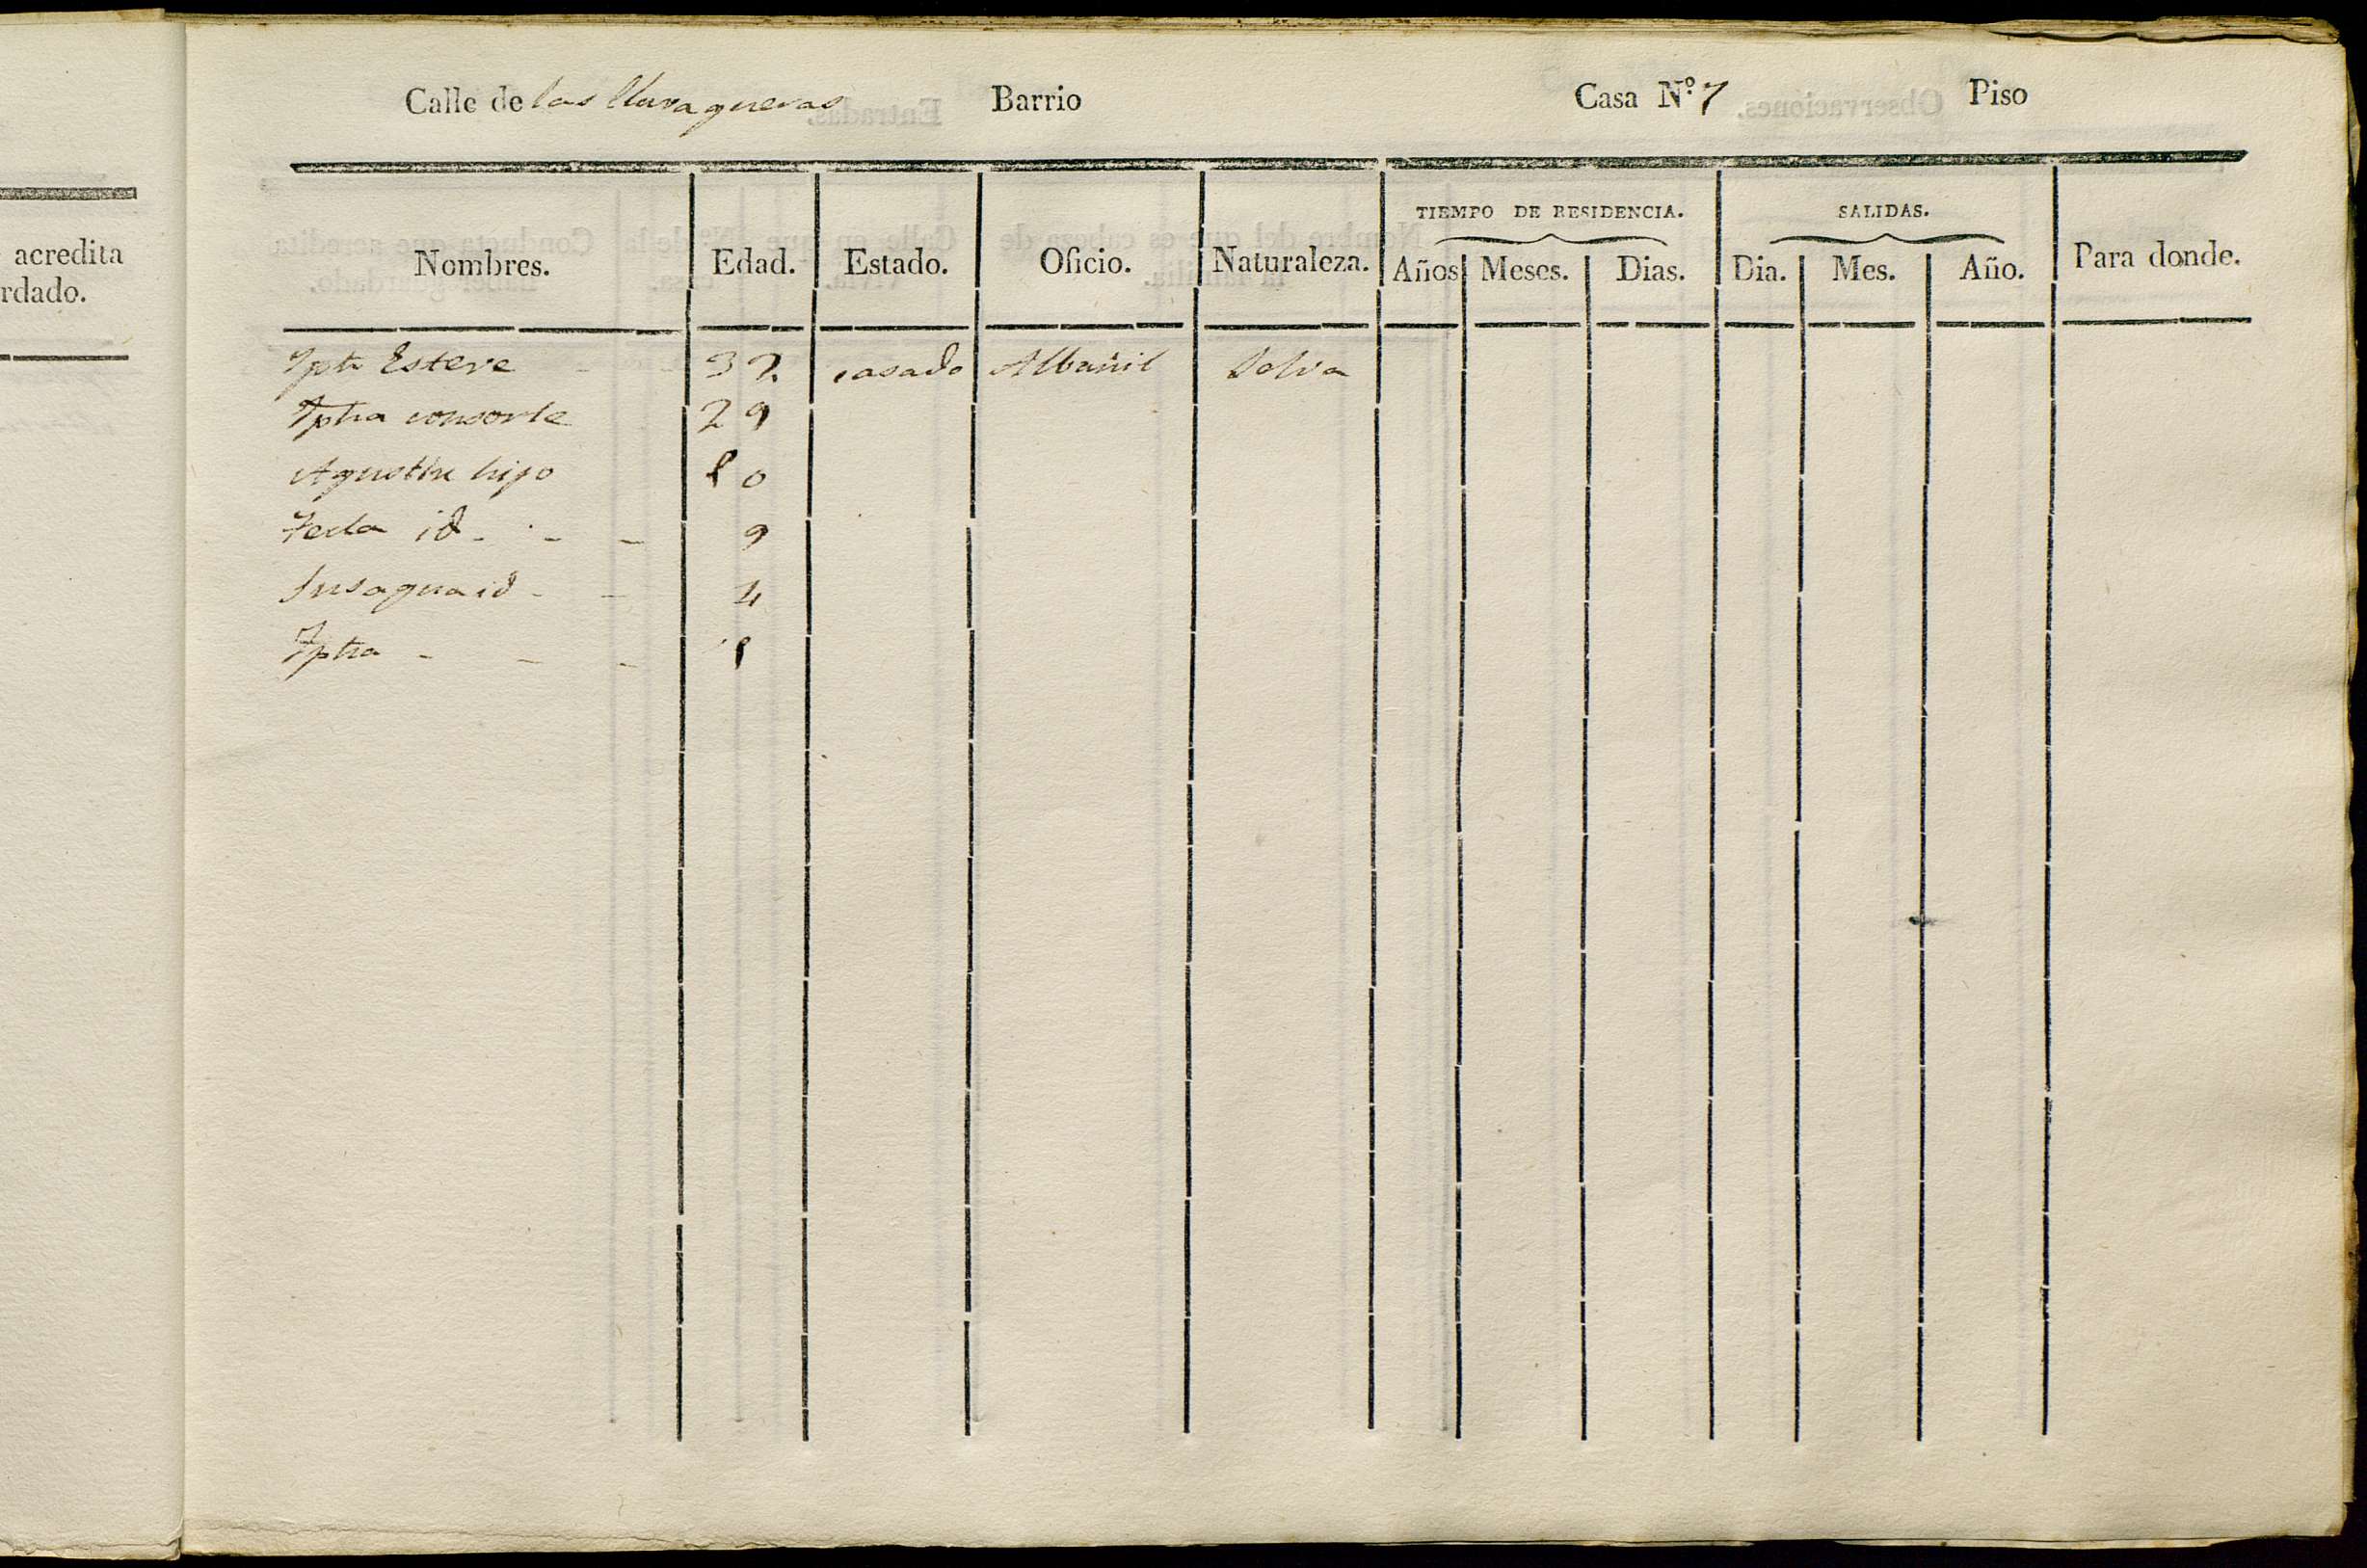 acredita
rdado.
Calle de las Llavagueras Barrio Casa N.º 7 Piso
TIEMPO DE RESIDENCIA. SALIDAS.
Nombres. Edad. Estado. Oficio. Naturaleza. Años Meses. Dias. Dia. Mes. Año. Para donde.
Jph Esteve - 32 casado Albañil Selva
Jpha consorte 29
Agustin hijo 10
Tecla id - - - 9
id - - 4
Jpha - - - 1